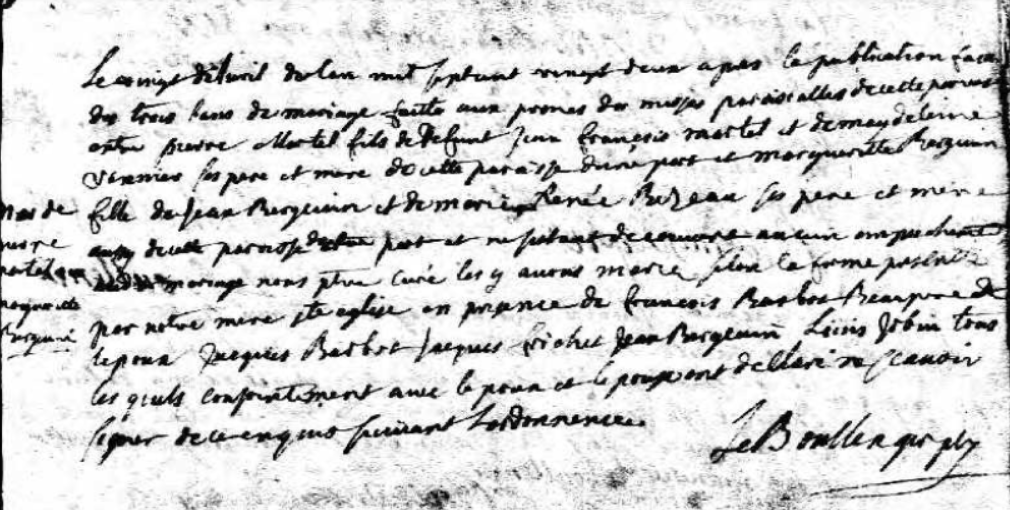 Le vingt d'avril de lan mil sept cent vingt deux apres la publication
des trois bans de mariage faitte aux prones des messes paroissialles de cette paroisse
entre pierre Martel fils de defunt Jean françois martel et de magdeleine
vannier ses pere et mere de cette paroisse d'une part et margueritte Berguin
fille de Jean Berguin et de marie Renée Bezeau ses pere et mere
aussy de cette paroisse dautre part et ne sestant decouvert aucun empechement
mariage nous ptre curé les y avons marie selon la forme
par notre mere ste eglise en presence de françois Barbot Beaupere de
lepoux Jacques Barbot Jacques frichet Jean Berguin Loüis Jobin tous
les quels conjointement avec lepoux et lepouse ont declaré ne scavoir
signer de ce enquis suivant lordonnence
Le Boullenger ptre
Mar de
pierre
martel
marguerite
Berguin